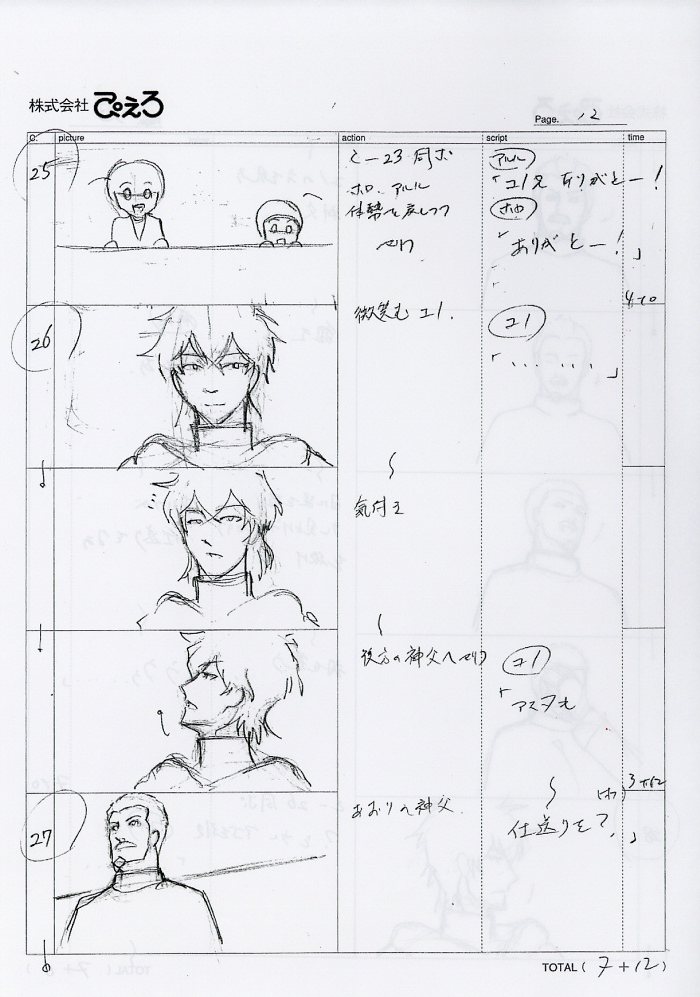 株式会社 ぴえろ
Page. 12
C. picture action script time
25
C-23 同ポ
ホロ、アルル
体勢を戻しつつ
セリフ
アルル
「ユノ兄 ありがとー!
ホロ
「ありがとー!」
4+0
26
微笑むユノ.
ユノ
「… …」
気付き
後方の神父へセリフ
ユノ
「アスタも
3+12
27
あおりの神父.
仕送りを?」
TOTAL ( 7+12 )